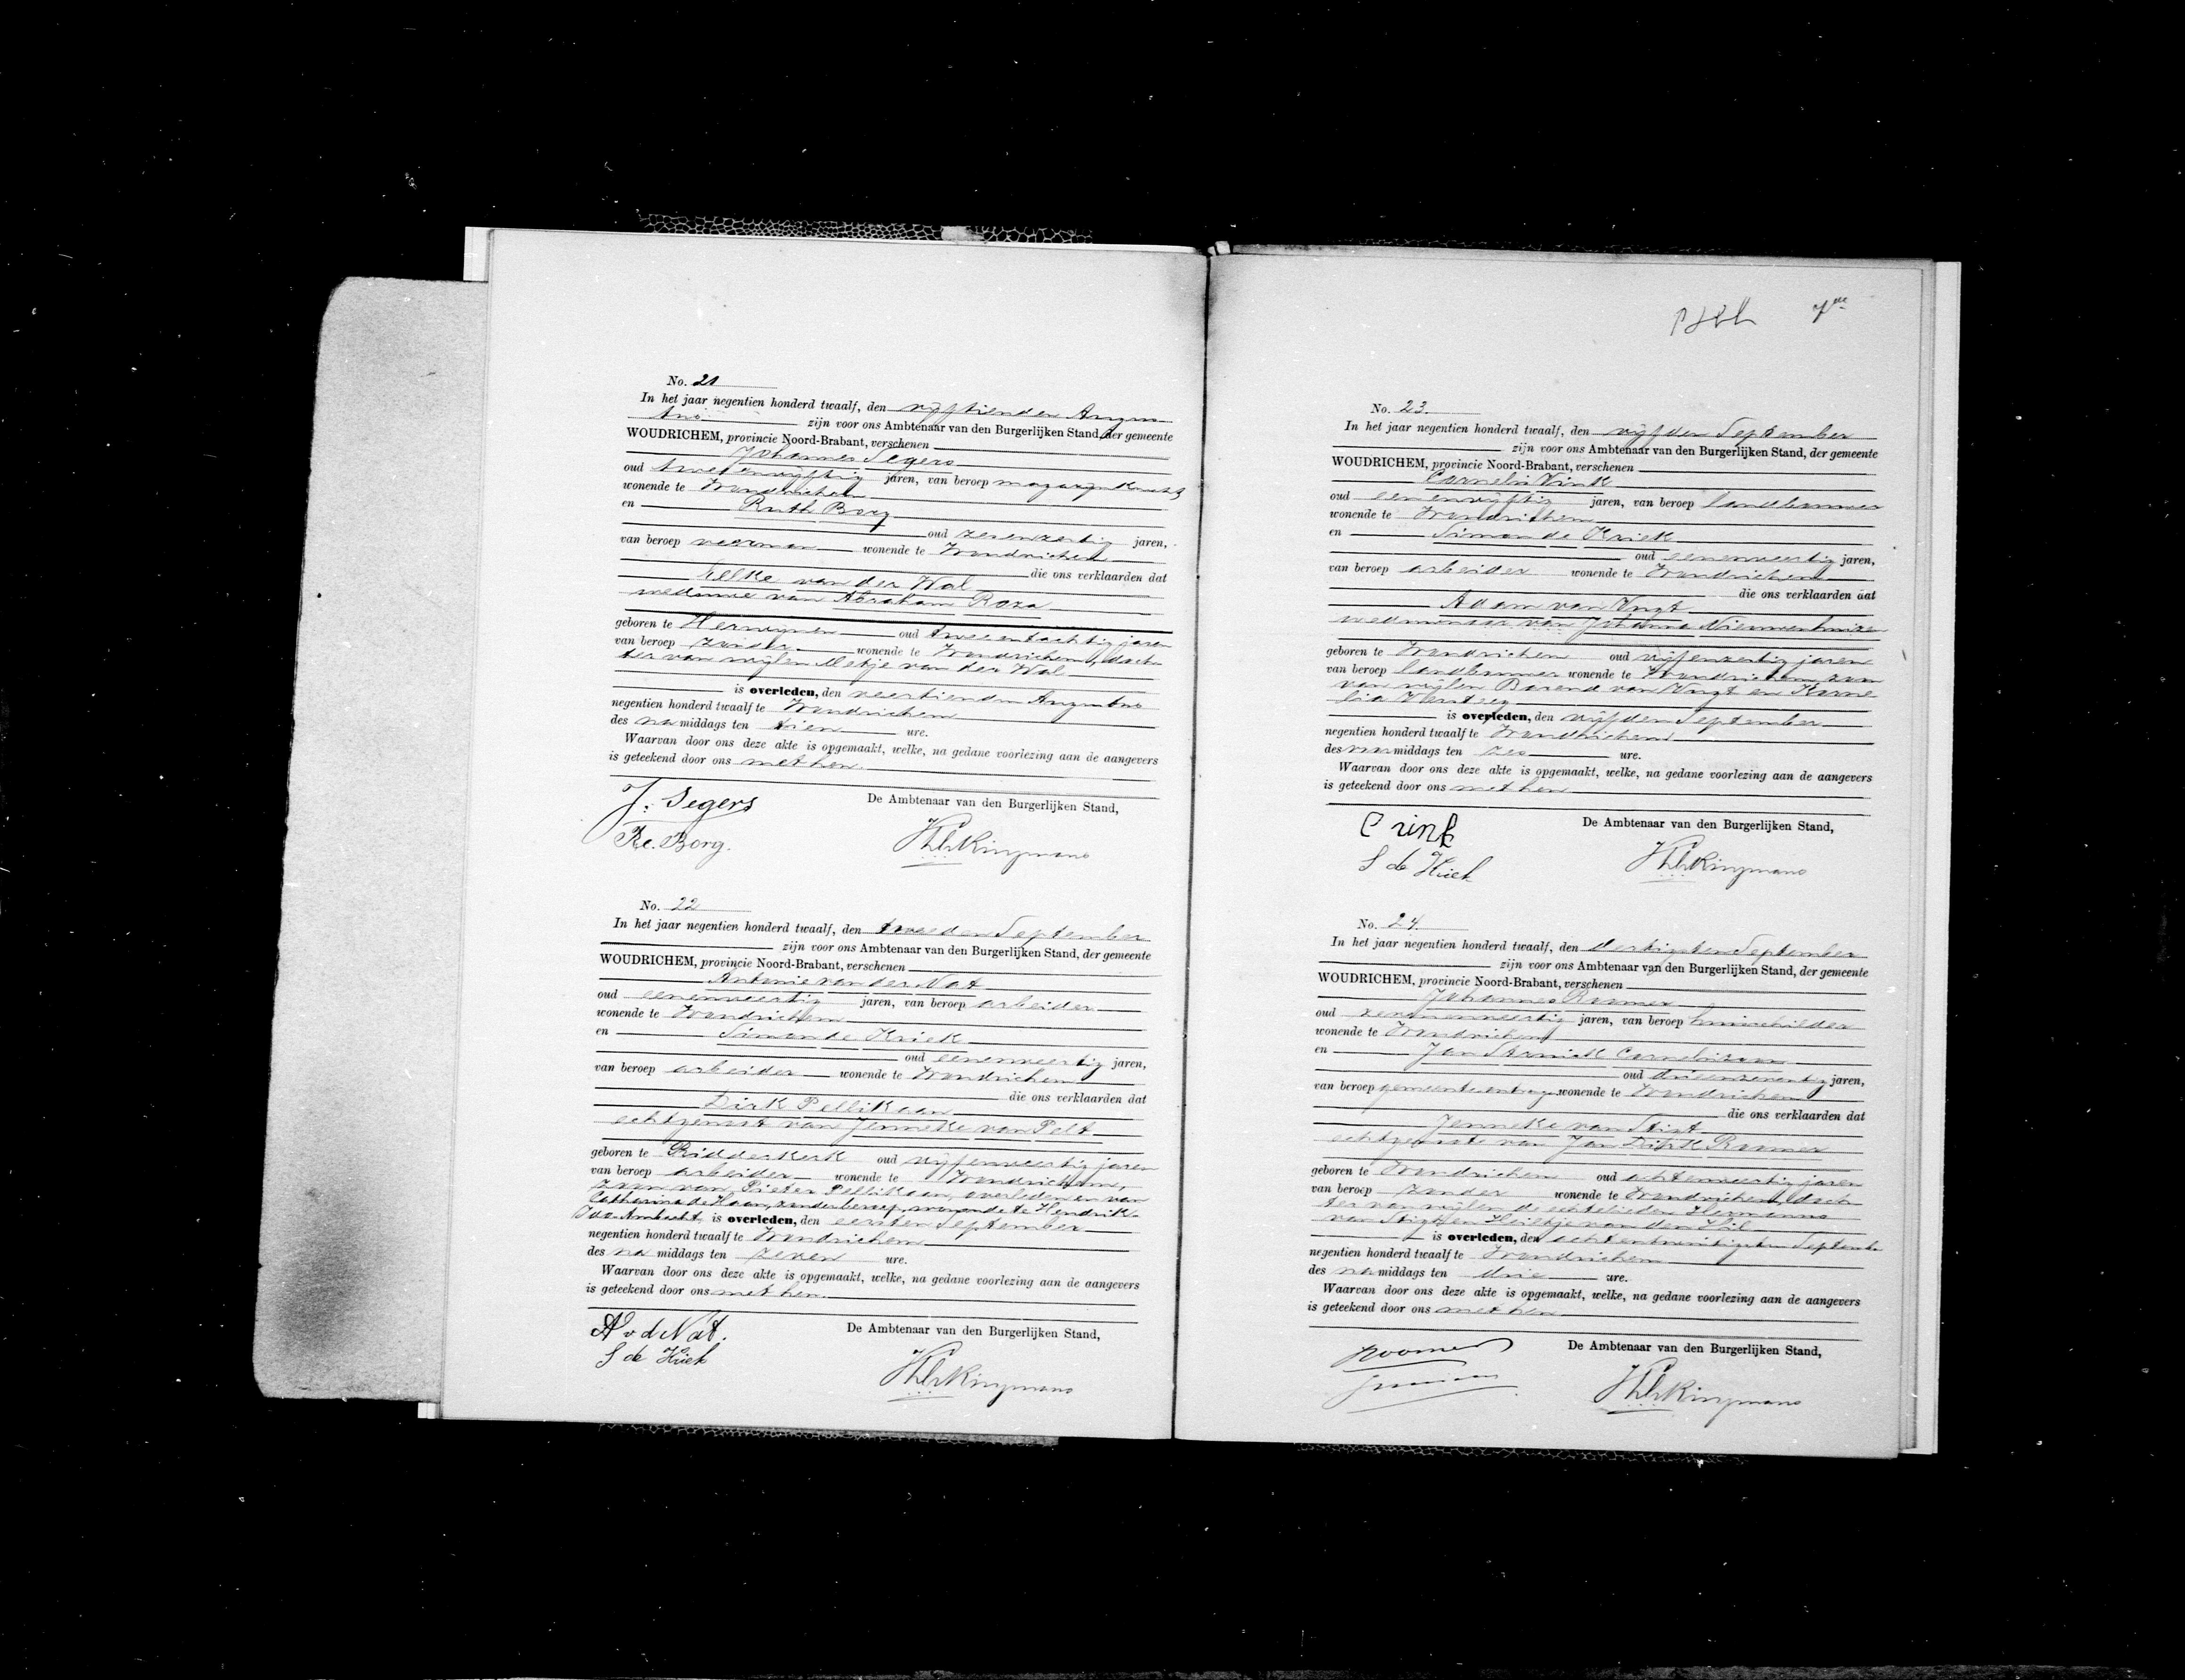 No. 21
In het jaar negentien honderd twaalf, den vijftienden Augus
tus zijn voor ons Ambtenaar van den Burgerlijken Stand, der gemeente
WOUDRICHEM, provincie Noord-Brabant, verschenen
Johannes Segers
oud tweeenvijftig jaren, van beroep magazijnknecht
wonende te Woudrichem
en Ruth Borg
oud zevenzestig jaren,
van beroep veerman wonende te Woudrichem
die ons verklaarden dat
Eelke van der Wal
weduwe van Abraham Roza
geboren te Herwijnen oud tweeentachtig jaren
van beroep zonder wonende te Woudrichem, doch
ter van wijlen Metje van der Wal
is overleden, den veertienden Augustus
negentien honderd twaalf te Woudrichem
des na middags ten tien ure.
Waarvan door ons deze akte is opgemaakt, welke, na gedane voorlezing aan de aangevers
is geteekend door ons met hen.
J. Segers
De Ambtenaar van den Burgerlijken Stand,
R. Borg.
No. 22
In het jaar negentien honderd twaalf, den tweeden September
zijn voor ons Ambtenaar van den Burgerlijken Stand, der gemeente
WOUDRICHEM, provincie Noord-Brabant, verschenen
Antonie van der Nat
oud eenenveertig jaren, van beroep arbeider
wonende te Woudrichem
en Simon de Kriek
oud eenenveertig jaren,
van beroep arbeider wonende te Woudrichem
die ons verklaarden dat
Dirk Pellikaan
echtgenoot van Jenneke van Pelt
geboren te Ridderkerk oud vijfenveertig jaren
van beroep arbeider wonende te Woudrichem,
zoon van Pieter Pellikaan, overleden en van
Catharina de Haan, zonder beroep, wonende te Hendrik-
Ido-Ambacht, is overleden, den eersten September
negentien honderd twaalf te Woudrichem
des na middags ten zeven ure.
Waarvan door ons deze akte is opgemaakt, welke, na gedane voorlezing aan de aangevers
is geteekend door ons met hen.
A v d Nat.
De Ambtenaar van den Burgerlijken Stand,
S de Kriek
7de
No. 23.
In het jaar negentien honderd twaalf, den vijfden September
zijn voor ons Ambtenaar van den Burgerlijken Stand, der gemeente
WOUDRICHEM, provincie Noord-Brabant, verschenen
Cornelis Vink
oud eenenvijftig jaren, van beroep landbouwer
wonende te Woudrichem
en Simon de Kriek
oud eenenveertig jaren,
van beroep arbeider wonende te Woudrichem
die ons verklaarden dat
Adam van Vugt
weduwnaar van Johanna Nieuwenhuizen
geboren te Woudrichem oud vijfenzestig jaren
van beroep landbouwer wonende te Woudrichem, zoon
van wijlen Barend van Vugt en Korne
lia
is overleden, den vijfden September
negentien honderd twaalf te Woudrichem
des na middags ten zes ure.
Waarvan door ons deze akte is opgemaakt, welke, na gedane voorlezing aan de aangevers
is geteekend door ons met hen
C vink
De Ambtenaar van den Burgerlijken Stand,
S de Kriek
No. 24.
In het jaar negentien honderd twaalf, den dertigsten September
zijn voor ons Ambtenaar van den Burgerlijken Stand, der gemeente
WOUDRICHEM, provincie Noord-Brabant, verschenen
Johannes Roomer
oud zevenenveertig jaren, van beroep huisschilder
wonende te Woudrichem
en Jan Corneliszoon
oud drieenzeventig jaren,
van beroep wonende te Woudrichem
die ons verklaarden dat
Jenneke van Stigt
echtgenoote van Jan Dirk Roomer
geboren te Woudrichem oud achtenveertig jaren
van beroep zonder wonende te Woudrichem, doch
ter van wijlen de echtelieden Hermanus
van Stigt en van den Hil
is overleden, den achtentwintigsten September
negentien honderd twaalf te Woudrichem
des na middags ten drie ure.
Waarvan door ons deze akte is opgemaakt, welke, na gedane voorlezing aan de aangevers
is geteekend door ons met hen
Roomer
De Ambtenaar van den Burgerlijken Stand,